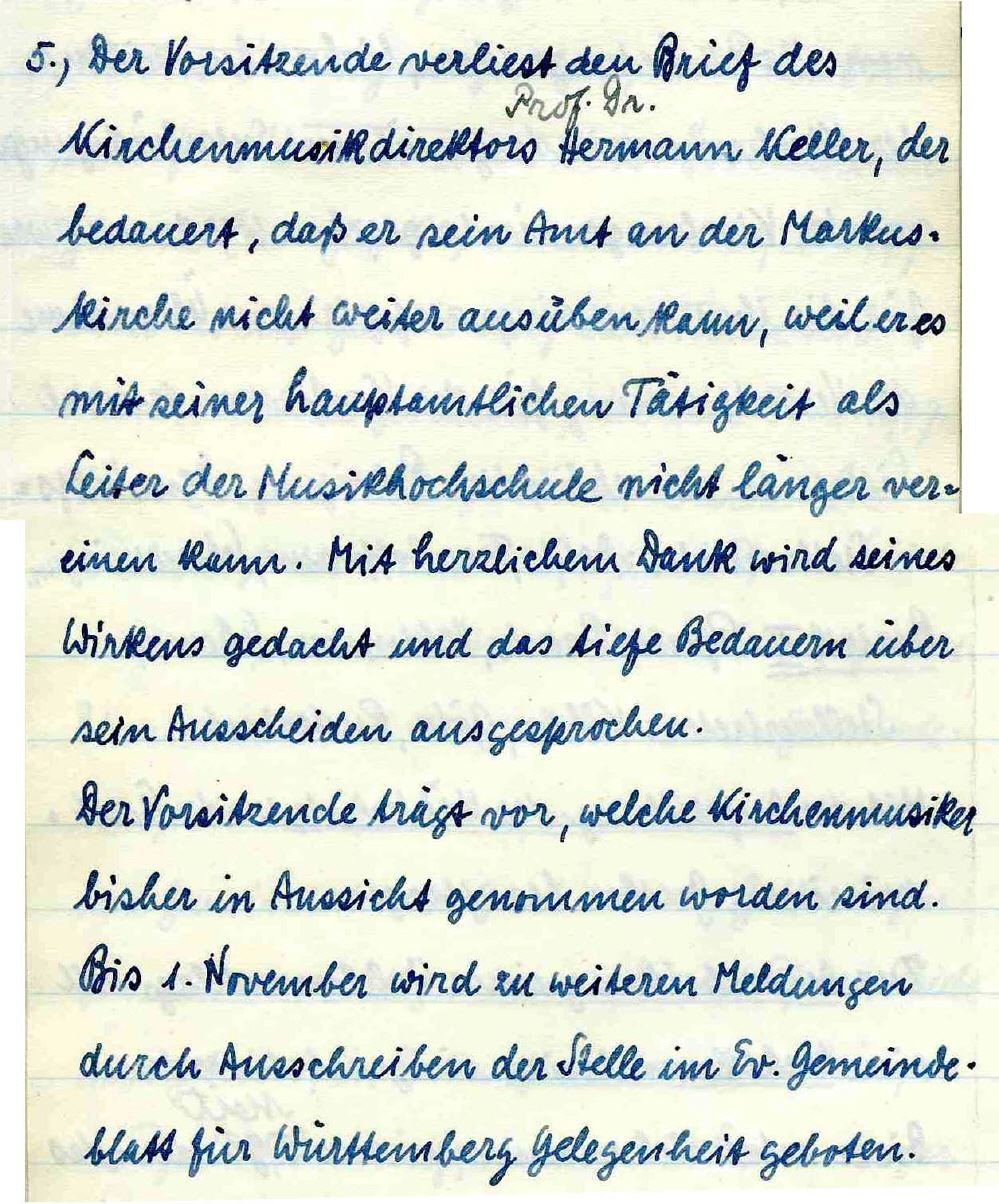 5., Der Vorsitzende verliest den Brief des
Prof. Dr.
Kirchenmusikdirektors Hermann Keller, der
bedauert, daß er sein Amt an der Markus-
kirche nicht weiter ausüben kann, weil er es
mit seiner hauptamtlichen Tätigkeit als
Leiter der Musikhochschule nicht länger ver-
einen kann. Mit herzlichem Dank wird seines
Wirkens gedacht und das tiefe Bedauern über
sein Ausscheiden ausgesprochen.
Der Vorsitzende trägt vor, welche Kirchenmusiker
bisher in Aussicht genommen worden sind.
Bis 1. November wird zu weiteren Meldungen
durch Ausschreiben der Stelle im Ev. Gemeinde-
blatt für Württemberg Gelegenheit geboten.